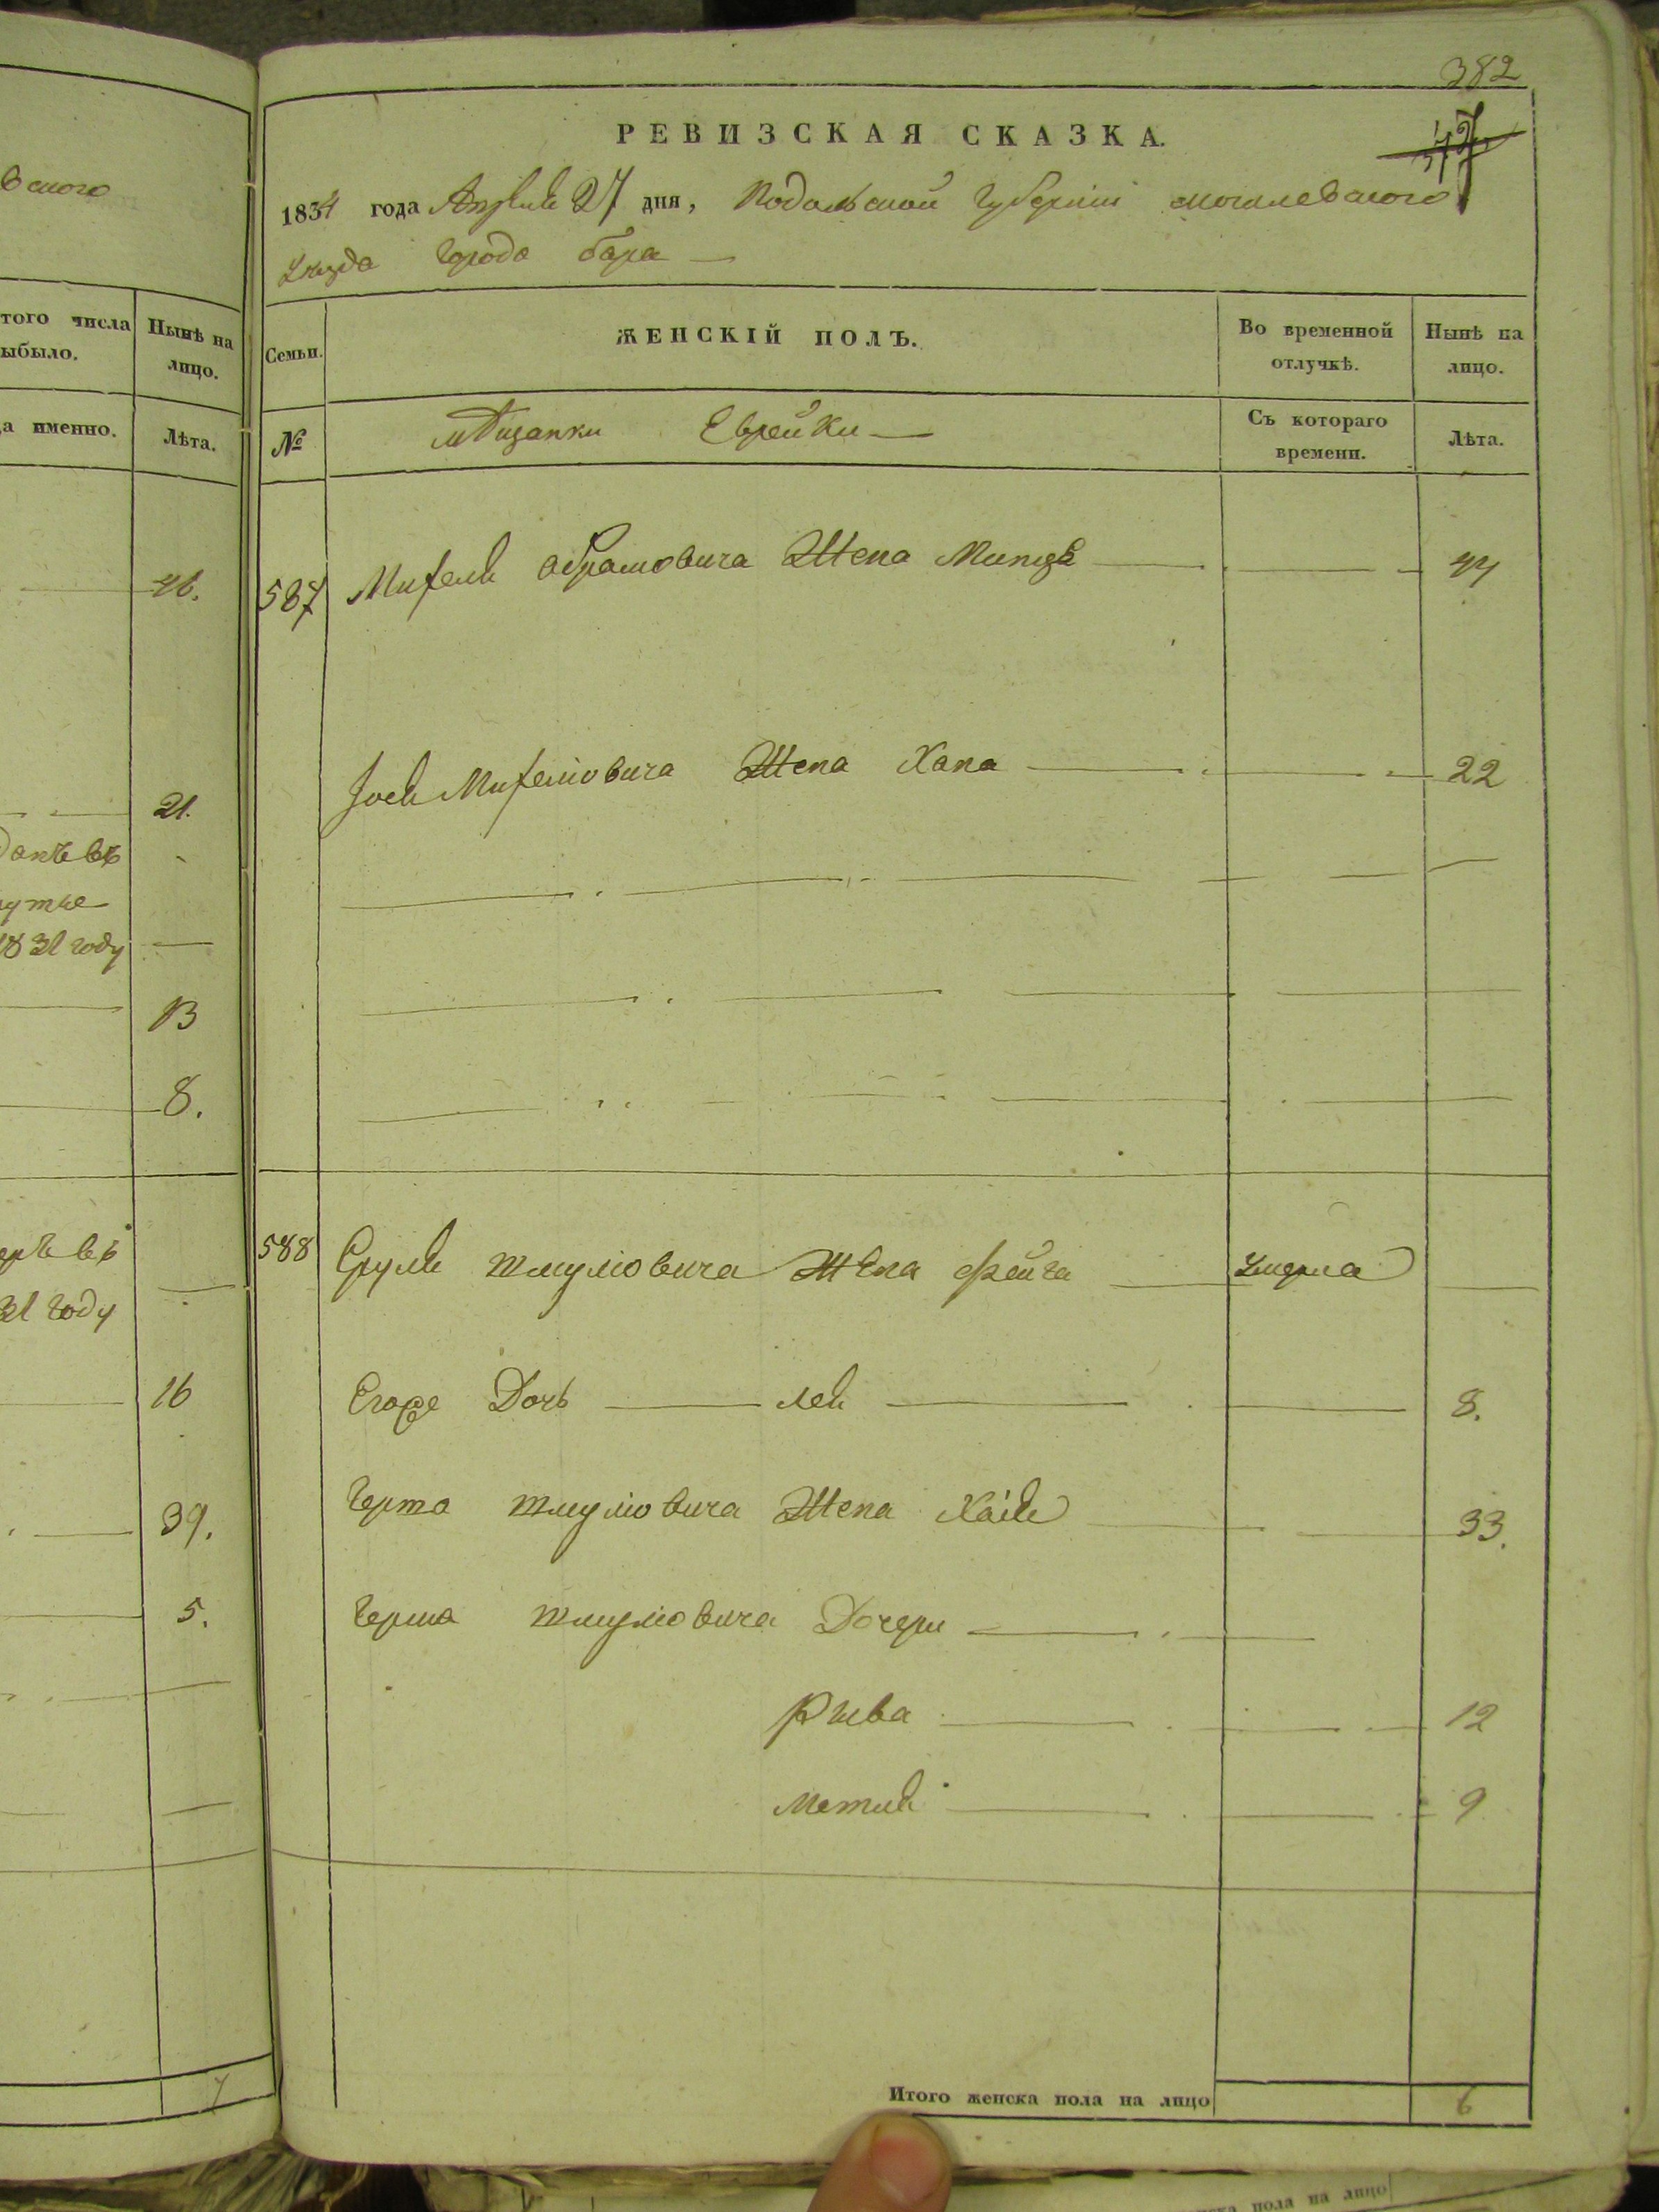 вского
того числа
выбыло.
Нынѣ на
лицо.
да именно.
Лѣта.
46.
21.
данъ въ
1831 году
13
8.
въ
31 году
16
39.
5.
7
382
РЕВИЗСКАЯ СКАЗКА.
1834 года Апреля 27 дня, Подольской Губерніи могилевского
уезда города бара
Семьи.
ЖЕНСКІЙ ПОЛЪ.
Во временной
отлучкѣ.
Нынѣ на
лицо.
№
мѣщанки Еврейки
Съ котораго
времени.
Лѣта.
587 Михеля абрамовича Жена Миндя 44
Іося Михелiовича Жена Хана 22
588 Сруля Шмулiовича Жена Фейга умерла
Егоже Дочь Лея 8.
Герша Шмулiовича Жена Хаія 33.
Герша Шмулiовича Дочери
Рива 12
Метля 9
Итого женска пола на лицо 6
пола на лицо